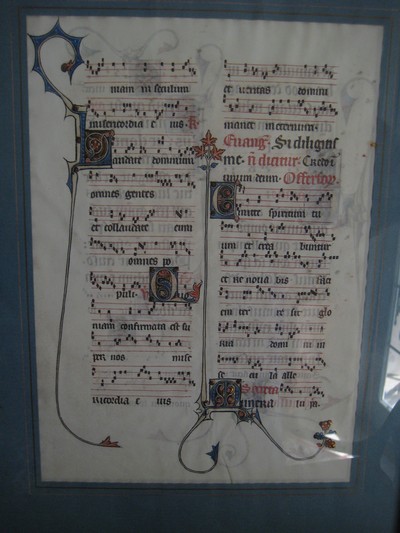 mam in seculum
misericordia e ius. R
audate dominum
omnes gentes
et collaudate eum
omnes po
puli. Quo
niam confirmata est su
per nos mise
ricordia e ius
et veritas domini
manet in eternum.
Euang. Si diligitis
me. n dicitur. Credo i
unum deum. Offertor
Emitte spiritum tu
um et crea buntur
et re novabis faci
em ter re sit glo
ria domini in
se cula alle